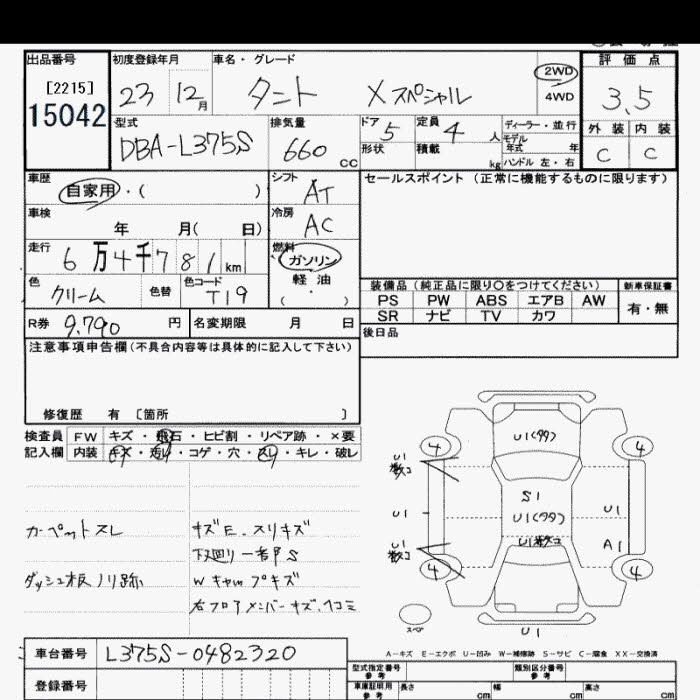 出品番号 初度登録年月 車名・グレード 2WD 評価点
[2215] 23 12月 タント Xスペシャル 4WD 3.5
15042
型式 排気量 ドア 5 定員 4人 ディーラー・並行 外装 内装
DBA-L375S 660cc 形状 積載 kg モデル年式 年 C C
ハンドル 左・右
車歴 自家用・( ) シフト AT セールスポイント (正常に機能するものに限ります)
車検 年 月( 日) 冷房 AC
走行 6万4千781km 燃料 ガソリン
軽油
( ・ )
色 クリーム 色替 色コード T19 装備品(純正品に限り〇をつけてください) 新車保証書
PS PW ABS エアB AW 有・無
R券 9,790円 名変期限 月 日 SR ナビ TV カワ
後日品
注意事項申告欄(不具合内容等は具体的に記入して下さい)
修復歴 有 [箇所 ]
検査員 FW キズ・飛石・ヒビ割・リペア跡・×要
記入欄 内装 キズ・汚レ・コゲ・穴・スレ・キレ・破レ
カーペットスレ キズE.スリキズ
下廻り一部S
ダッシュ板ノリ跡 WキャップキズU
右フロアメンバーキズ.ヘコミ
U1(99)
4 4
U1
数コ
S1
U1 U1(99) U1
U1数コ A1
U1
数コ
4 4
スペア
U1
A-キズ E-エクボ U-凹み W-補修跡 S-サビ C-腐食 XX-交換済
車台番号 L375S-0482320
型式指定番号 類別区分番号
参考 参考
登録番号 車庫証明用 長さ cm 幅 cm 高さ cm
参考